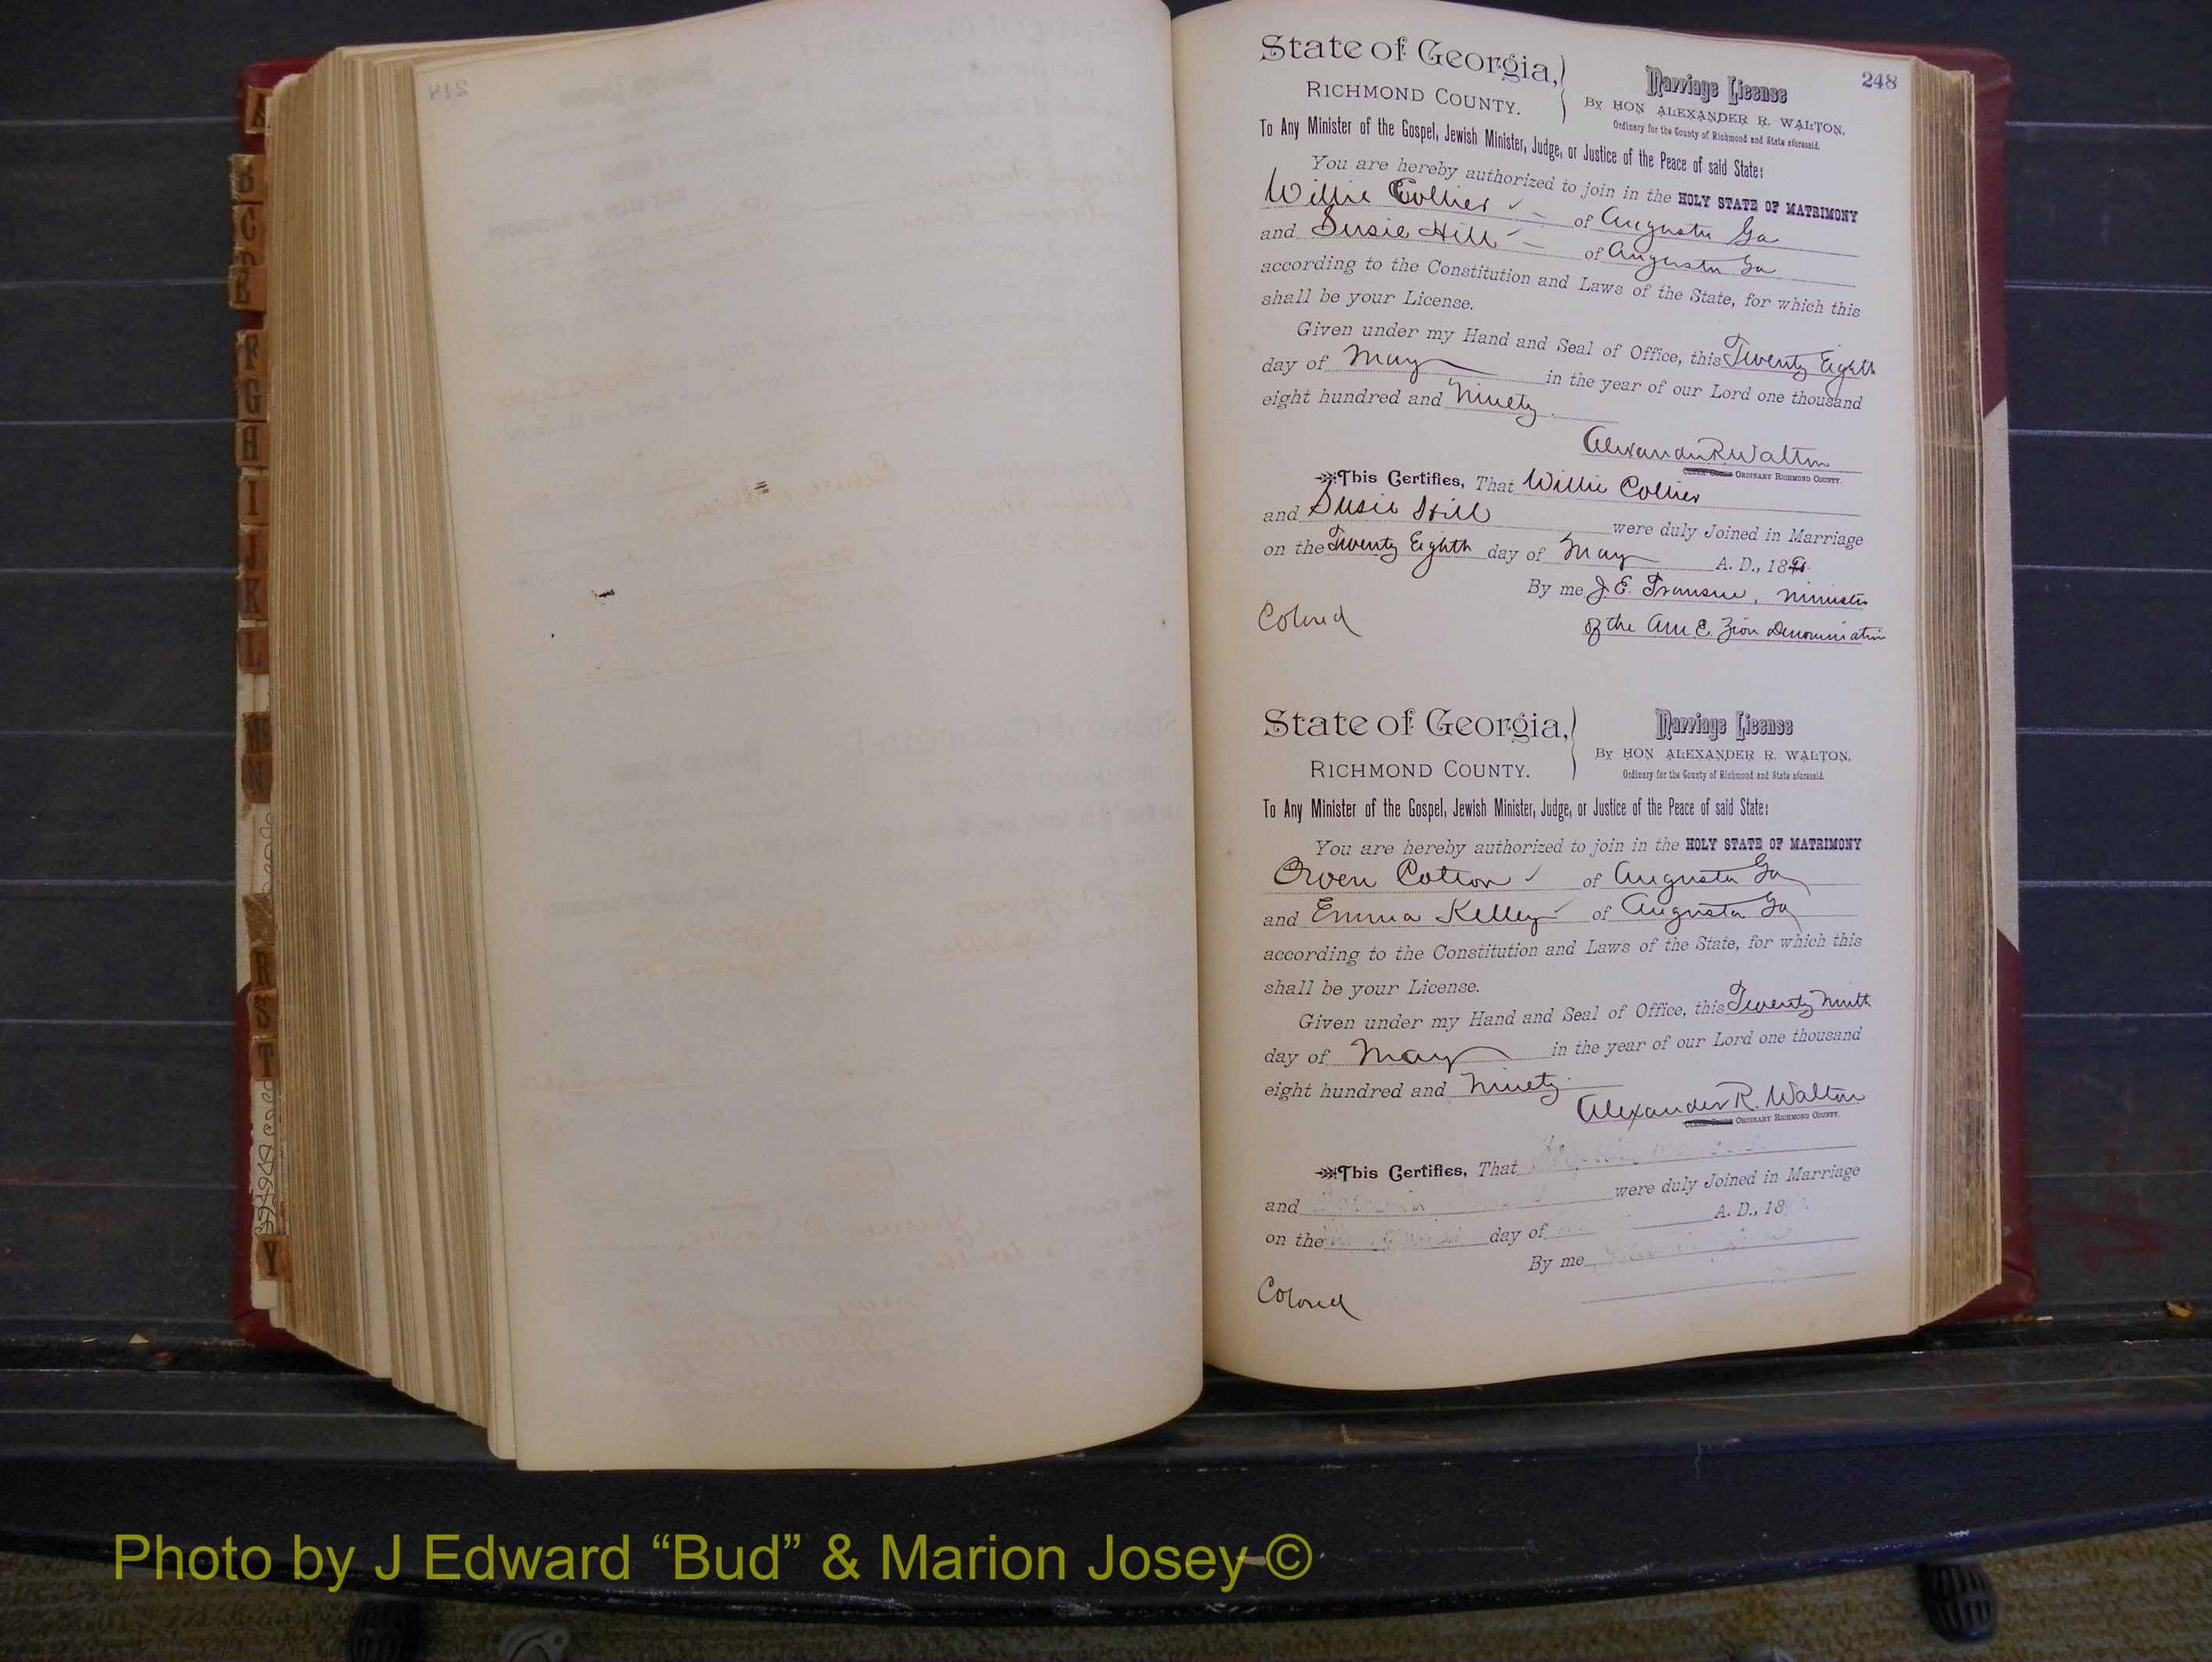 248
State of Georgia,
RICHMOND COUNTY.
Marriage License
BY HON ALEXANDER R. WALTON,
Ordinary for the County of Richmond and State aforesaid.
To Any Minister of the Gospel, Jewish Minister, Judge, or Justice of the Peace of said State:
You are hereby authorized to join in the HOLY STATE OF MATRIMONY
Willie Collier of Augusta Ga
and Susie Hill of Augusta Ga
according to the Constitution and Laws of the State, for which this
shall be your License.
Given under my Hand and Seal of Office, this Twenty Eighth
day of May in the year of our Lord one thousand
eight hundred and Ninety
Alexander R. Walton
ORDINARY RICHMOND COUNTY.
This Certifies, That Willie Collier
and Susie Hill were duly Joined in Marriage
on the Twenty Eighth day of May A. D., 18
By me J. E. Minister
of the Am E. Zion Denomination
Colored
State of Georgia,
RICHMOND COUNTY.
Marriage License
BY HON ALEXANDER R. WALTON,
Ordinary for the County of Richmond and State aforesaid.
To Any Minister of the Gospel, Jewish Minister, Judge, or Justice of the Peace of said State:
You are hereby authorized to join in the HOLY STATE OF MATRIMONY
Owen Cotton of Augusta Ga
and Emma Kelley of Augusta Ga
according to the Constitution and Laws of the State, for which this
shall be your License.
Given under my Hand and Seal of Office, this Twenty Ninth
day of May in the year of our Lord one thousand
eight hundred and Ninety
Alexander R. Walton
ORDINARY RICHMOND COUNTY.
This Certifies, That
and were duly Joined in Marriage
on the day of A. D., 18
By me
Colored
Photo by J Edward “Bud” & Marion Josey ©